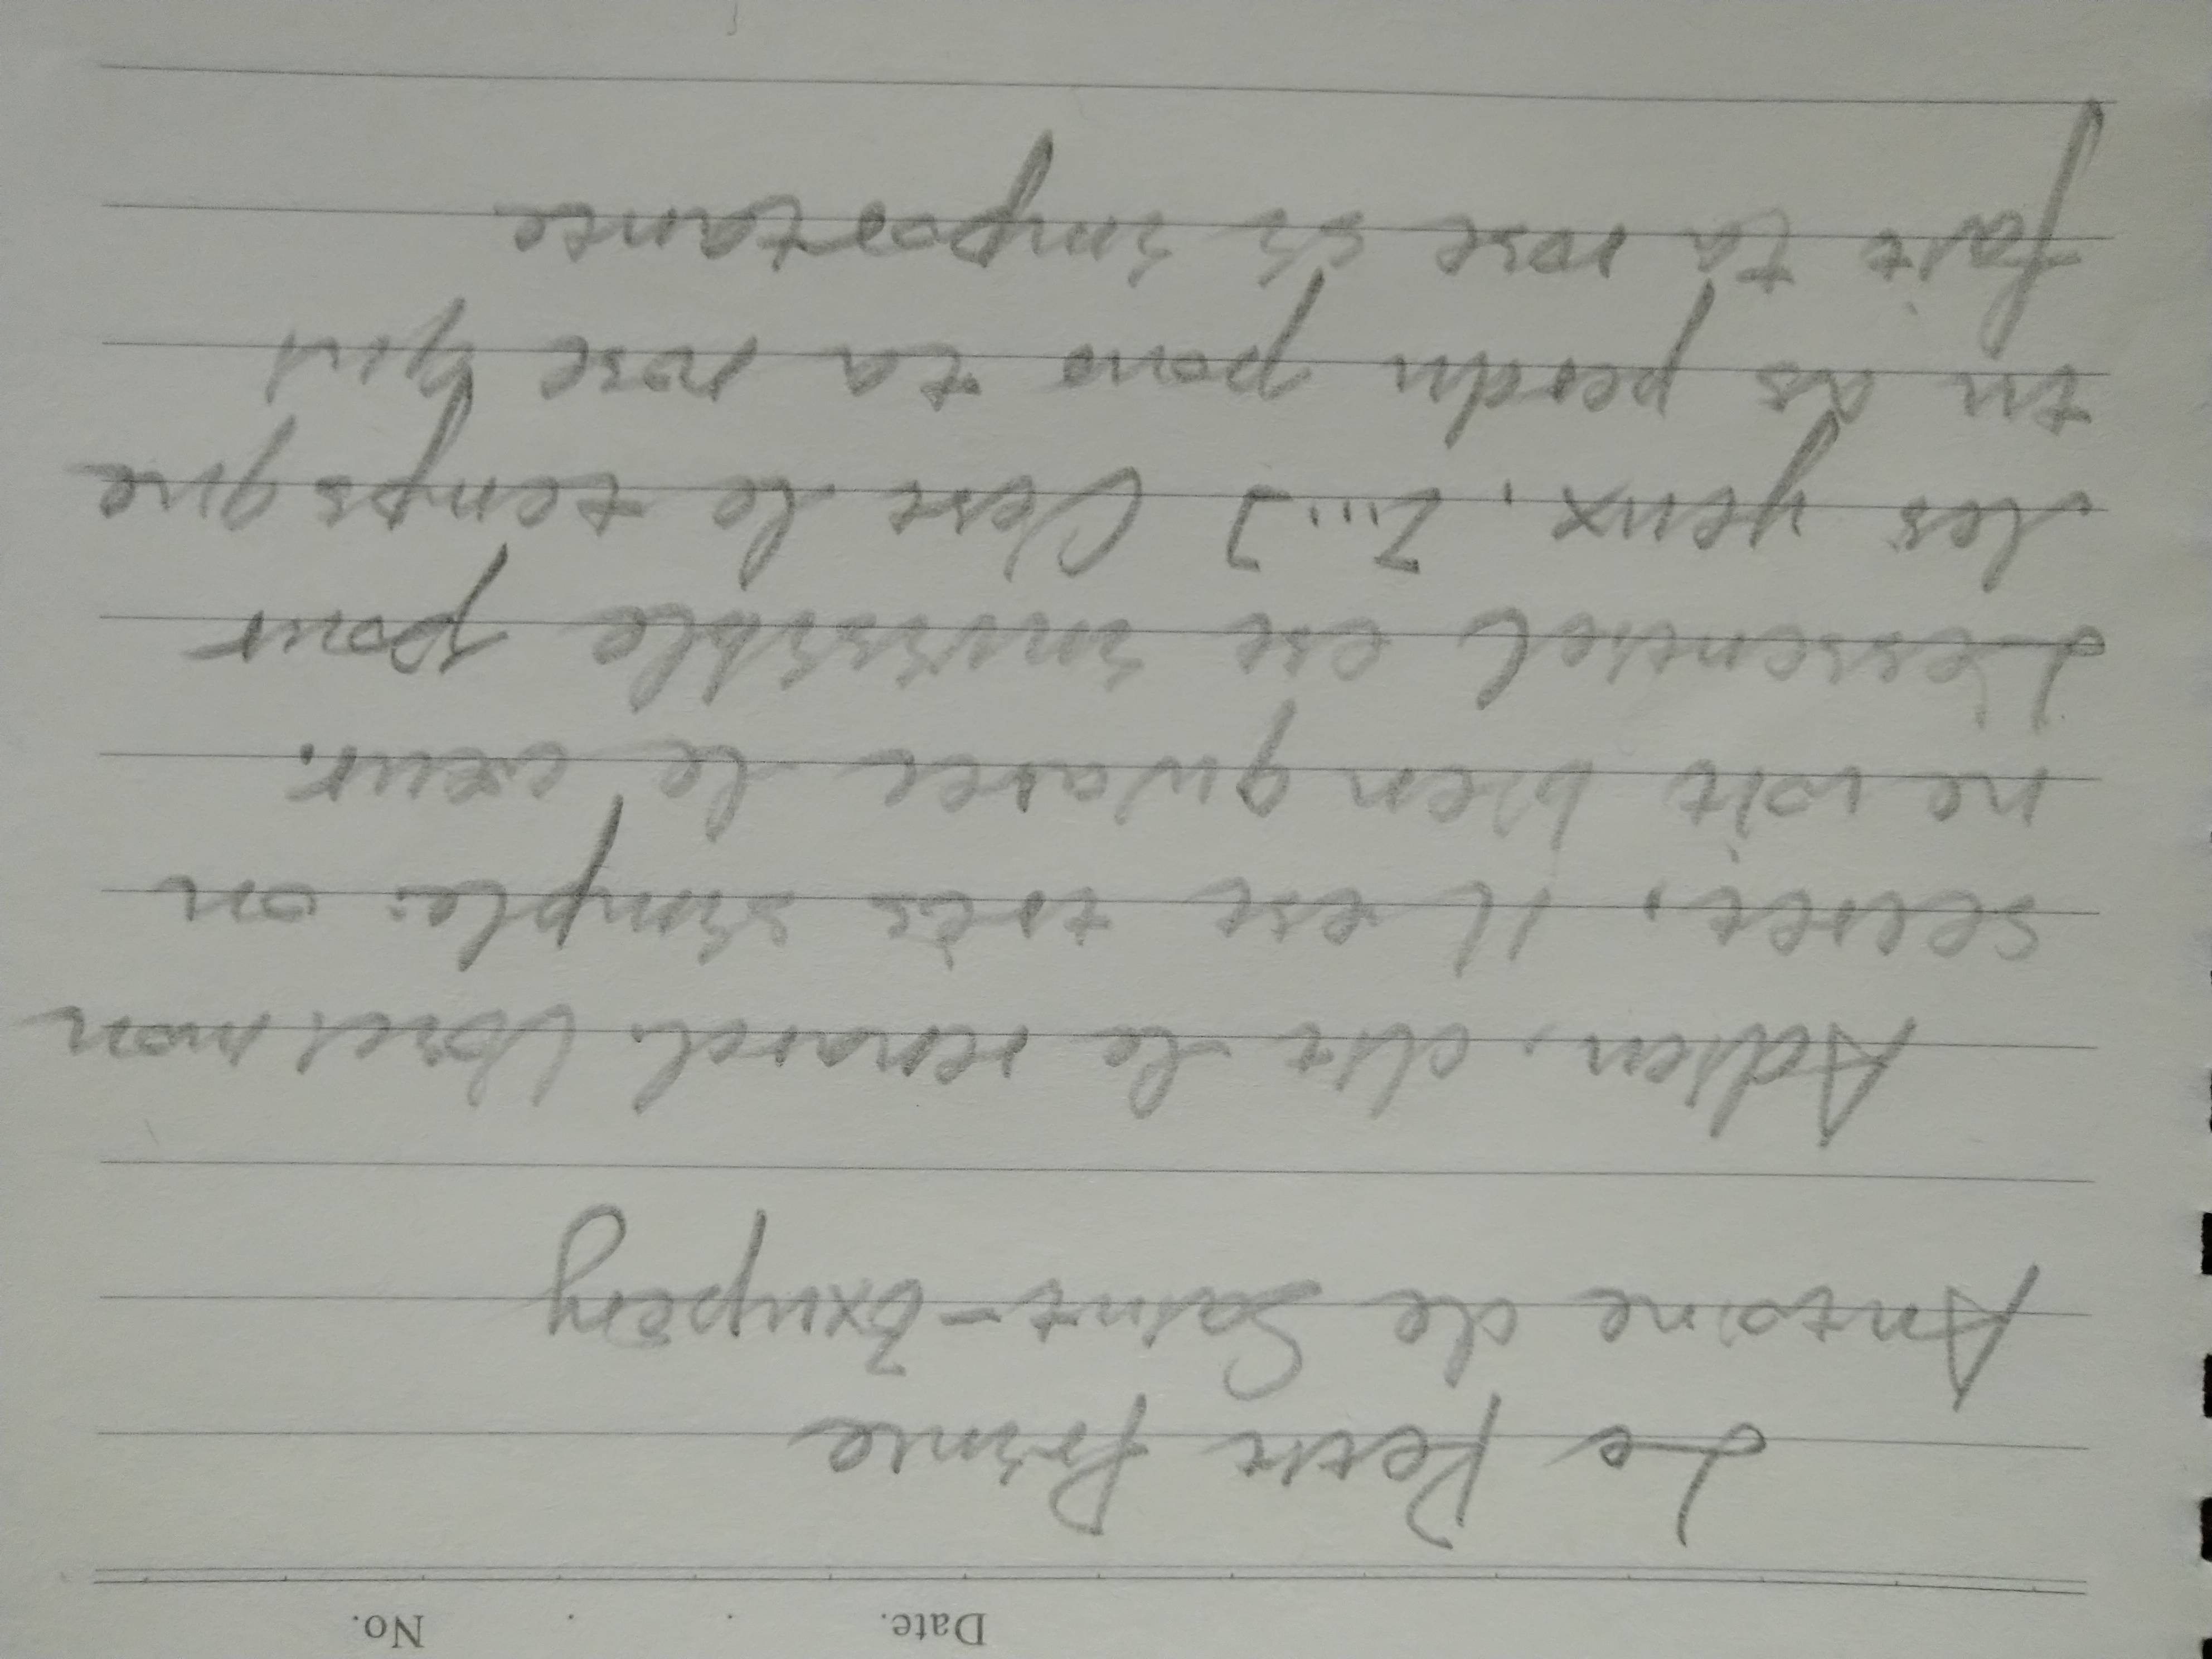 Date. . . No.
Le Petit Prince
Antoine de Saint-Exupéry
Adieu, dit le renard. Voici mon
secret. Il est très simple: on
ne voit bien qu'avec le cœur.
L'essentiel est invisible pour
les yeux. [...] C'est le temps que
tu as perdu pour ta rose qui
fait ta rose si importante